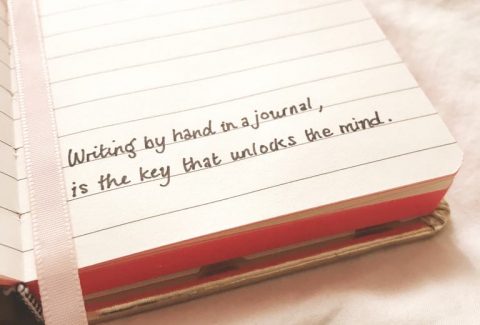 Writing by hand in a journal,
is the key that unlocks the mind.